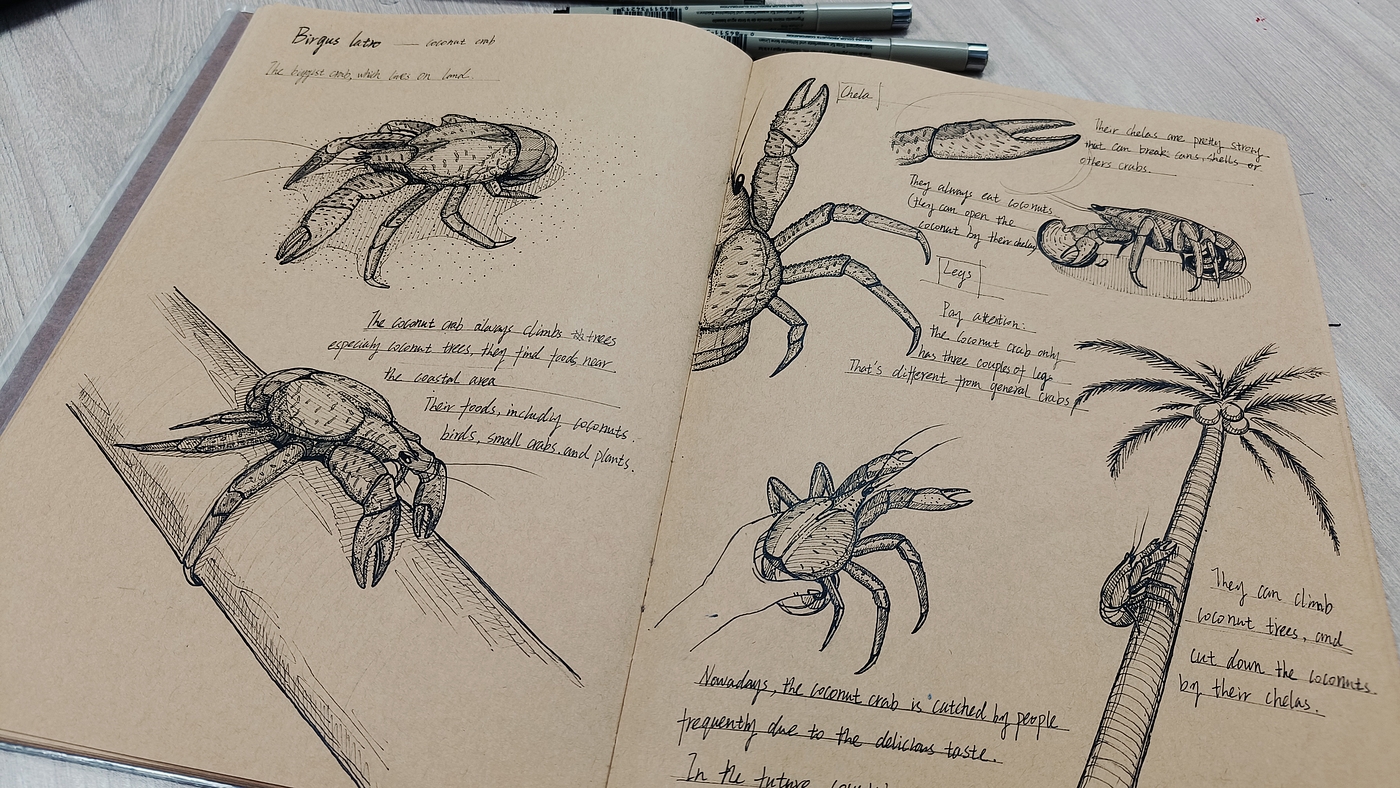 Birgus latro — coconut crab
The biggest crab, which lives on land.
The coconut crab always climbs trees
especialy coconut trees, they find foods near
the coastal area
Their foods, includiy coconuts.
birds, small crabs, and plants.
Chela
Their chelas are pretty strong
that can break cans, shells or
others crabs.
They always eat coconuts.
(they can open the
coconut by their chelas)
Legs
Pay attention:
the coconut crab only
has three couples of legs
That's different from general crabs!
They can climb
coconut trees, and
cut down the coconuts
by their chelas.
Nowadays, the coconut crab is catched by people
frequently due to the delicious taste.
In the future,